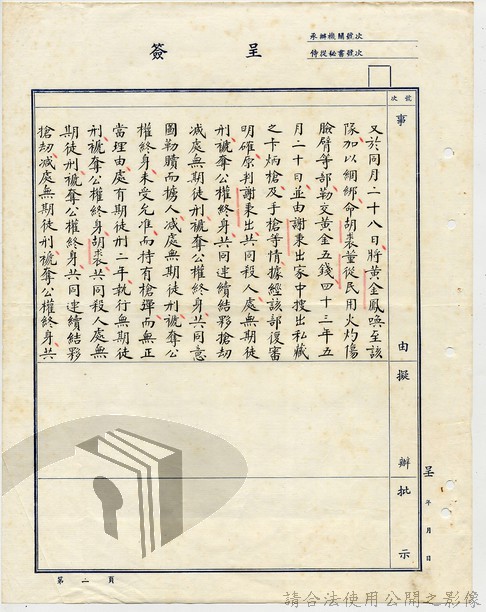 簽呈
承辦機關號次
侍從秘書號次
號次
事由
擬辦
批示
呈 年 月 日
又於同月二十八日將黃金鳳喚至該
隊加以綑綁命胡裘董從民用火灼陽
臉臂等部勒交黃金五錢四十三年五
月二十日並由謝東出家中搜出私藏
之卡炳槍及手槍等情據經該部復審
明確原判謝東出共同殺人處無期徒
刑褫奪公權終身共同連續結夥搶劫
減處無期徒刑褫奪公權終身共同意
圖勒贖而擄人減處無期徒刑褫奪公
權終身未受允准而持有槍彈而無正
當理由處有期徒刑二年執行無期徒
刑褫奪公權終身胡裘共同殺人處無
期徒刑褫奪公權終身共同連續結夥
搶劫減處無期徒刑褫奪公權終身共
第二頁
請合法使用公開之影像